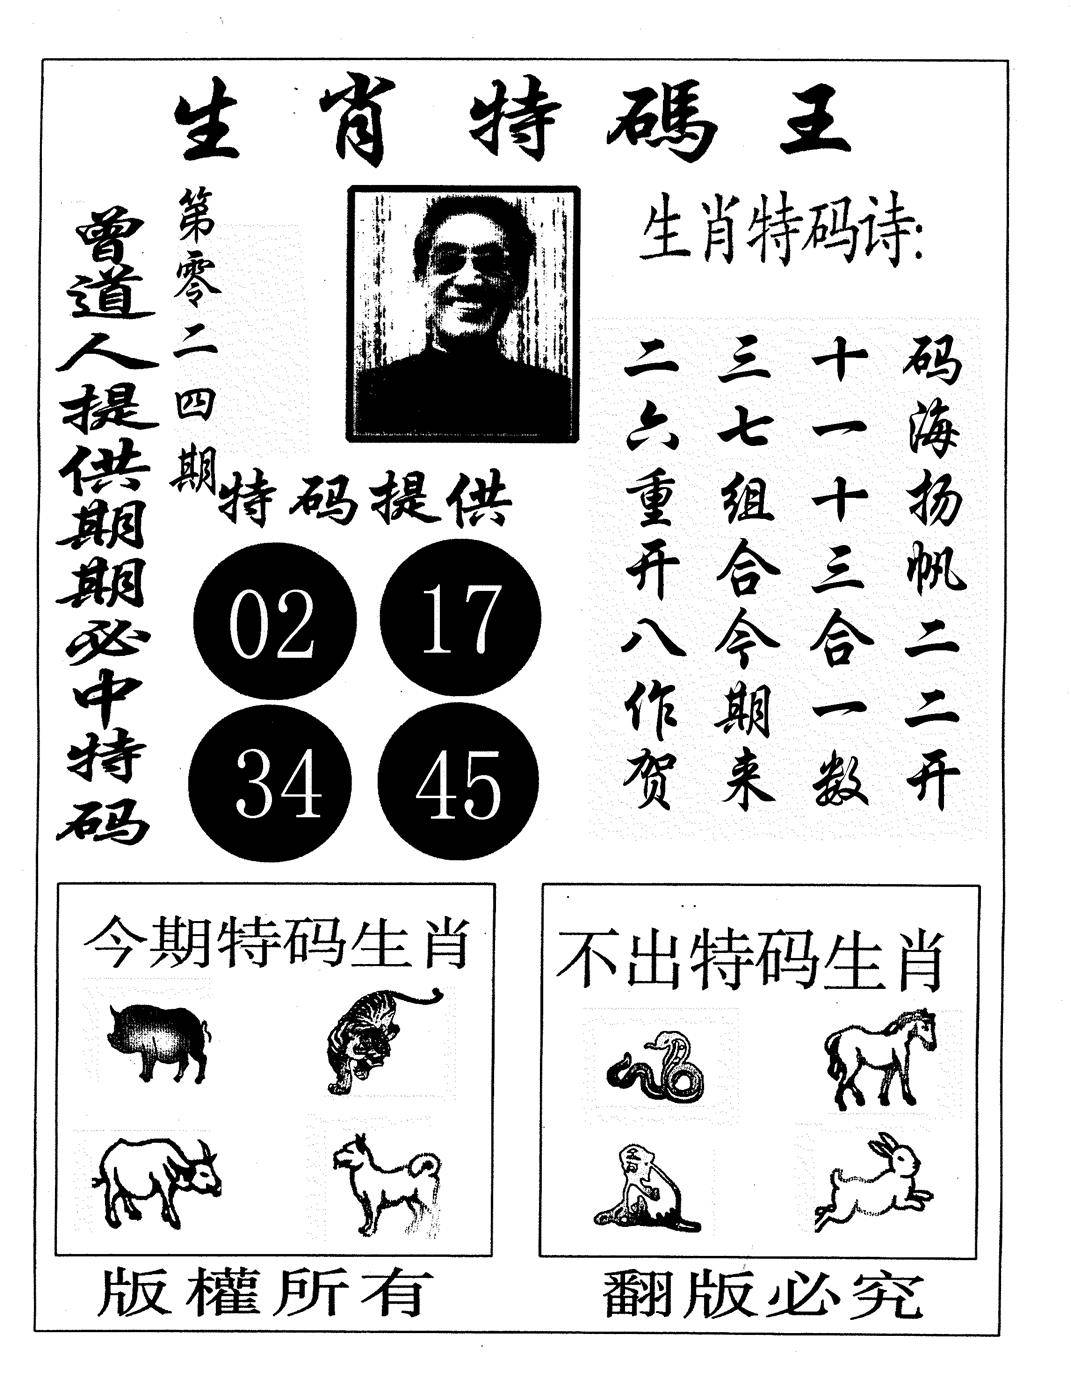 生肖特碼王
曾道人提供期期必中特码
第零二四期
生肖特码诗:
码海扬帆二二开
十一十三合一数
三七组合今期来
二六重开八作贺
特码提供
02 17
34 45
今期特码生肖
不出特码生肖
版權所有
翻版必究